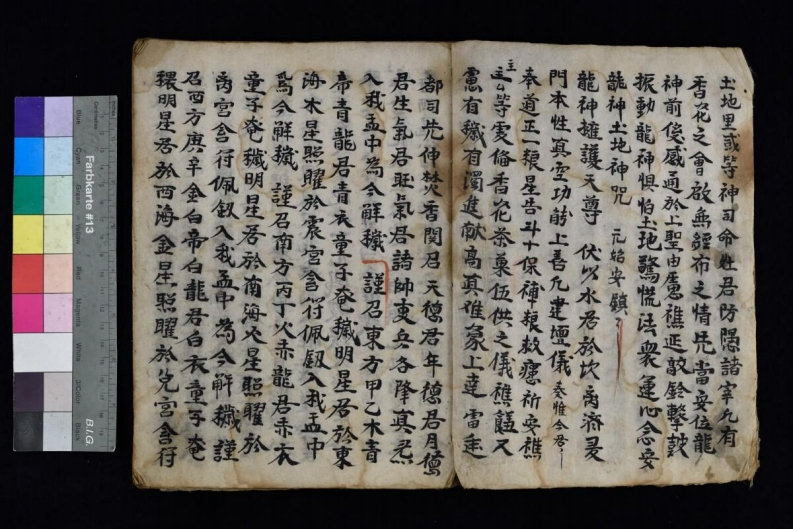 土地里或等神司命姓君防隅諸宰凡有
香花之會啟無疆布之情凭當安位龍
神前俊感通於上聖由慮醮延敲鈴擊鼓
振動龍神惧怕土地驚慌法衆運心念安
龍神土地神咒 元始安鎮
龍神擁護天尊 伏以水君於坎离濟
門本性真空功
上善凡建壇儀
奉道正一 星告斗十保 祈安醮
主
等 香花茶菓伍供之儀醮 又
有穢有濁進献高真 上達
都司 伸焚香関召天德君年德君月德
君生氣君旺氣君諸帥吏兵各降真炁
入我盂中為今解穢 謹召東方甲乙木青
帝青龍君青衣童子奄穢明星君於東
海木星照曜於震宮含符佩劔入我盂中
為今解穢 謹召南方丙丁火赤龍君赤衣
童子奄穢明星君於南海火星照曜於
离宮含符佩劔入我盂中為今解穢謹
召西方庚辛金白帝白龍君白衣童子奄
穢明星君於西海金星照曜於兌宮含符
Farbkarte #13
B.I.G.
Blue
Cyan
Green
Yellow
Red
Magenta
White
3/Color
Black